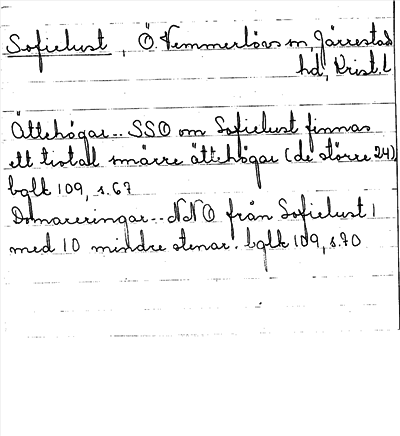 Sofielust, Ö Vemmerlövs sn, Järrestad
hd, Krist. l
Ättehögar.. SSO om Sofielust finnas
ett tiotal smärre ättehögar (de större 24)
bglk 109, s. 67
Domareringar.. NNO från Sofielust 1
med 10 mindre stenar. bglk 109, s. 70